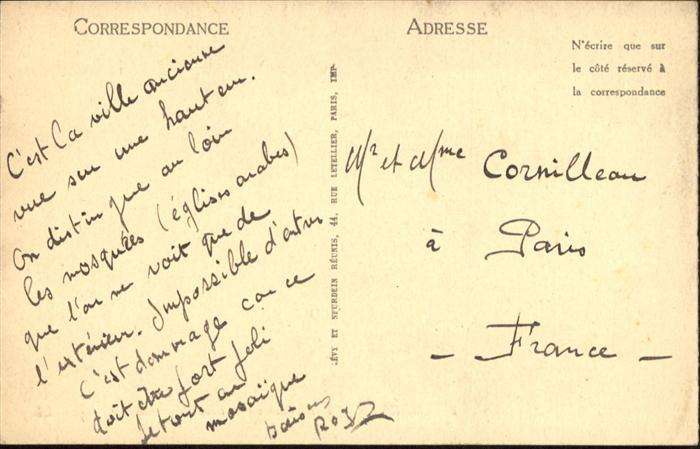 CORRESPONDANCE
ADRESSE
N'écrire que sur
le côté réservé à
la correspondance
C'est la ville ancienne
vue sur une hauteur.
On distingue au loin
les mosquées (églises arabes)
que l'on ne voit que de
l'extérieur. Impossible d'entrer
C'est dommage car ce
doit être fort joli
le tout en
mosaïque
LÉVY ET NEURDEIN RÉUNIS, 44, RUE LETELLIER, PARIS, IMP.
Mr et Mme Cornilleau
à Paris
- France -